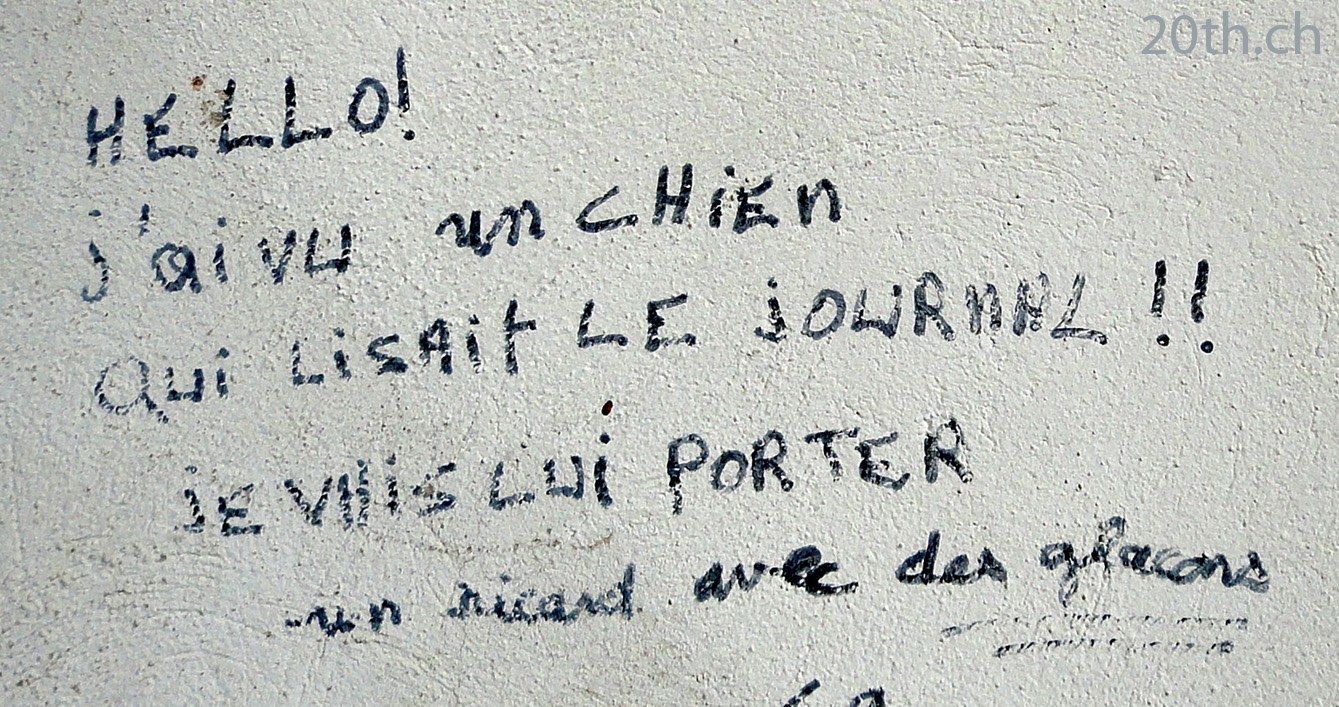 20th.ch
HELLO!
j'ai vu un CHiEn
Qui LisAit LE jOURnAL !!
jE VAis LUi PORTER
un ricard avec des glacons